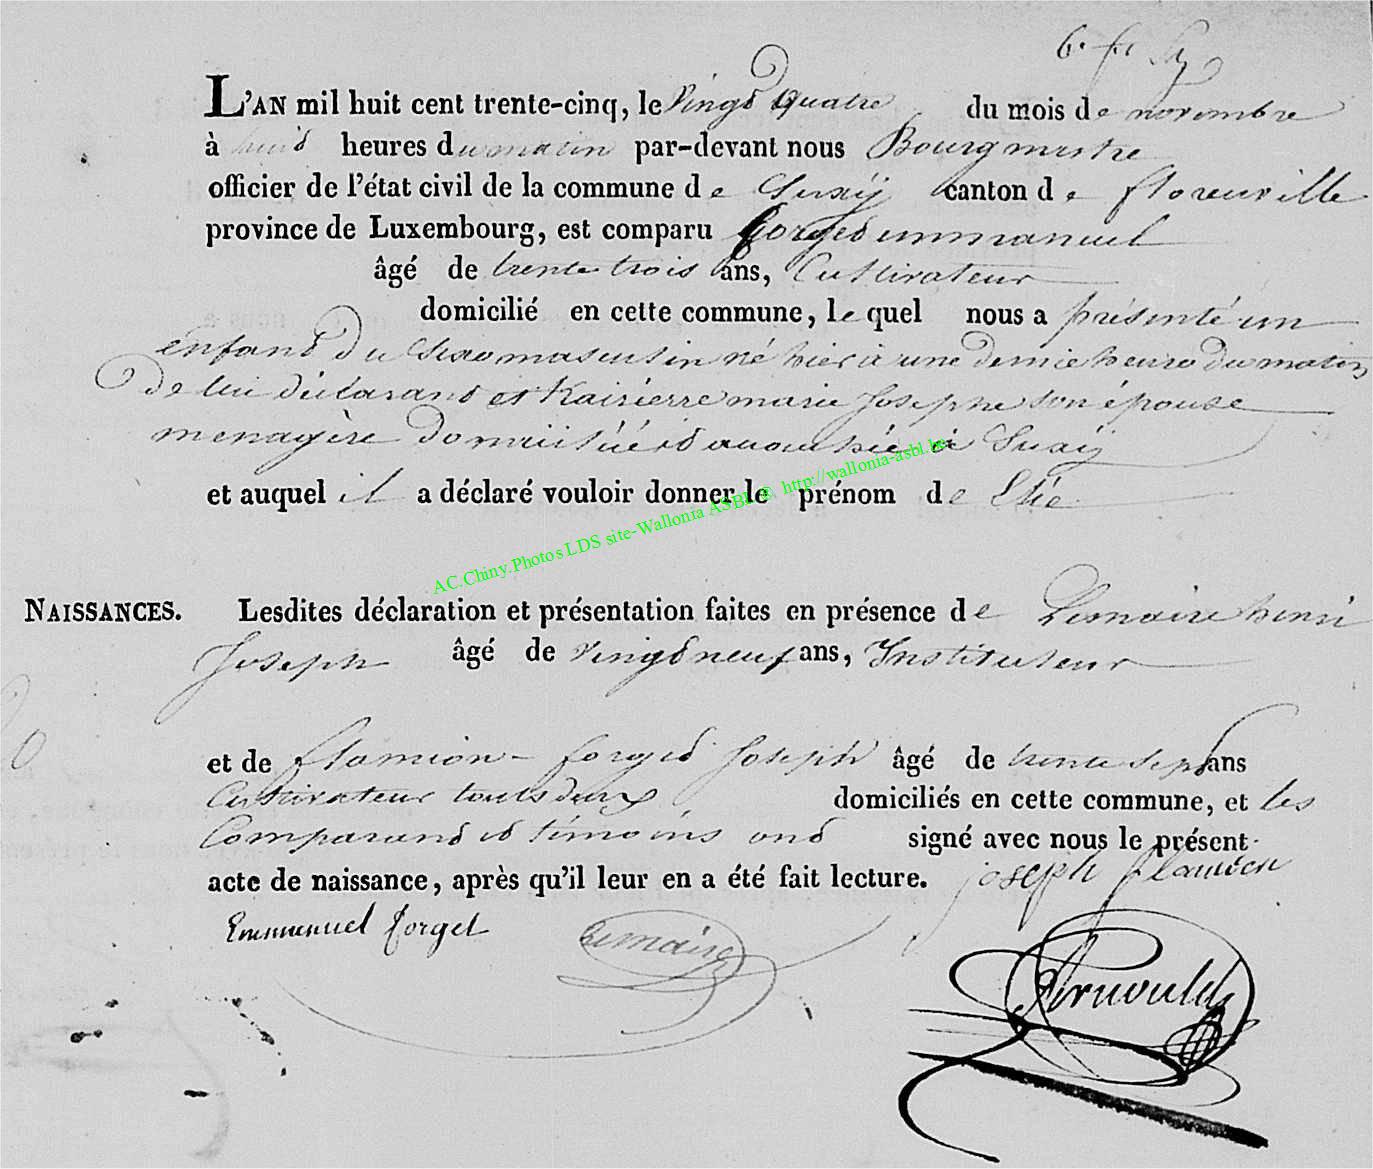 L'AN mil huit cent trente-cinq, le vingd quatre du mois de novembre
à huid heures du matin par-devant nous Bourgmestre
officier de l'état civil de la commune de Suxÿ canton de florenville
province de Luxembourg, est comparu forged emmanuel
âgé de trente trois ans, Cultivateur
domicilié en cette commune, le quel nous a présenté un
enfand du Sexe masculin né hier à une demie heure du matin
de lui déclarand et Kairierre marie Josephe son épouse
menagère domiciliée à Suxÿ
et auquel il a déclaré vouloir donner le prénom de Elie
AC.Chiny.Photos LDS site-Wallonia ASBL © http://wallonia-asbl.be
NAISSANCES. Lesdites déclaration et présentation faites en présence de Lemaire henri
Joseph âgé de vingd neuf ans, Instituteur
et de flamion-forged Joseph âgé de trente sept ans
Cultivateur touts deux domiciliés en cette commune, et les
Comparand et témoins ond signé avec nous le présent
acte de naissance, après qu'il leur en a été fait lecture. joseph flamion
Emmanuel forget Lemaire